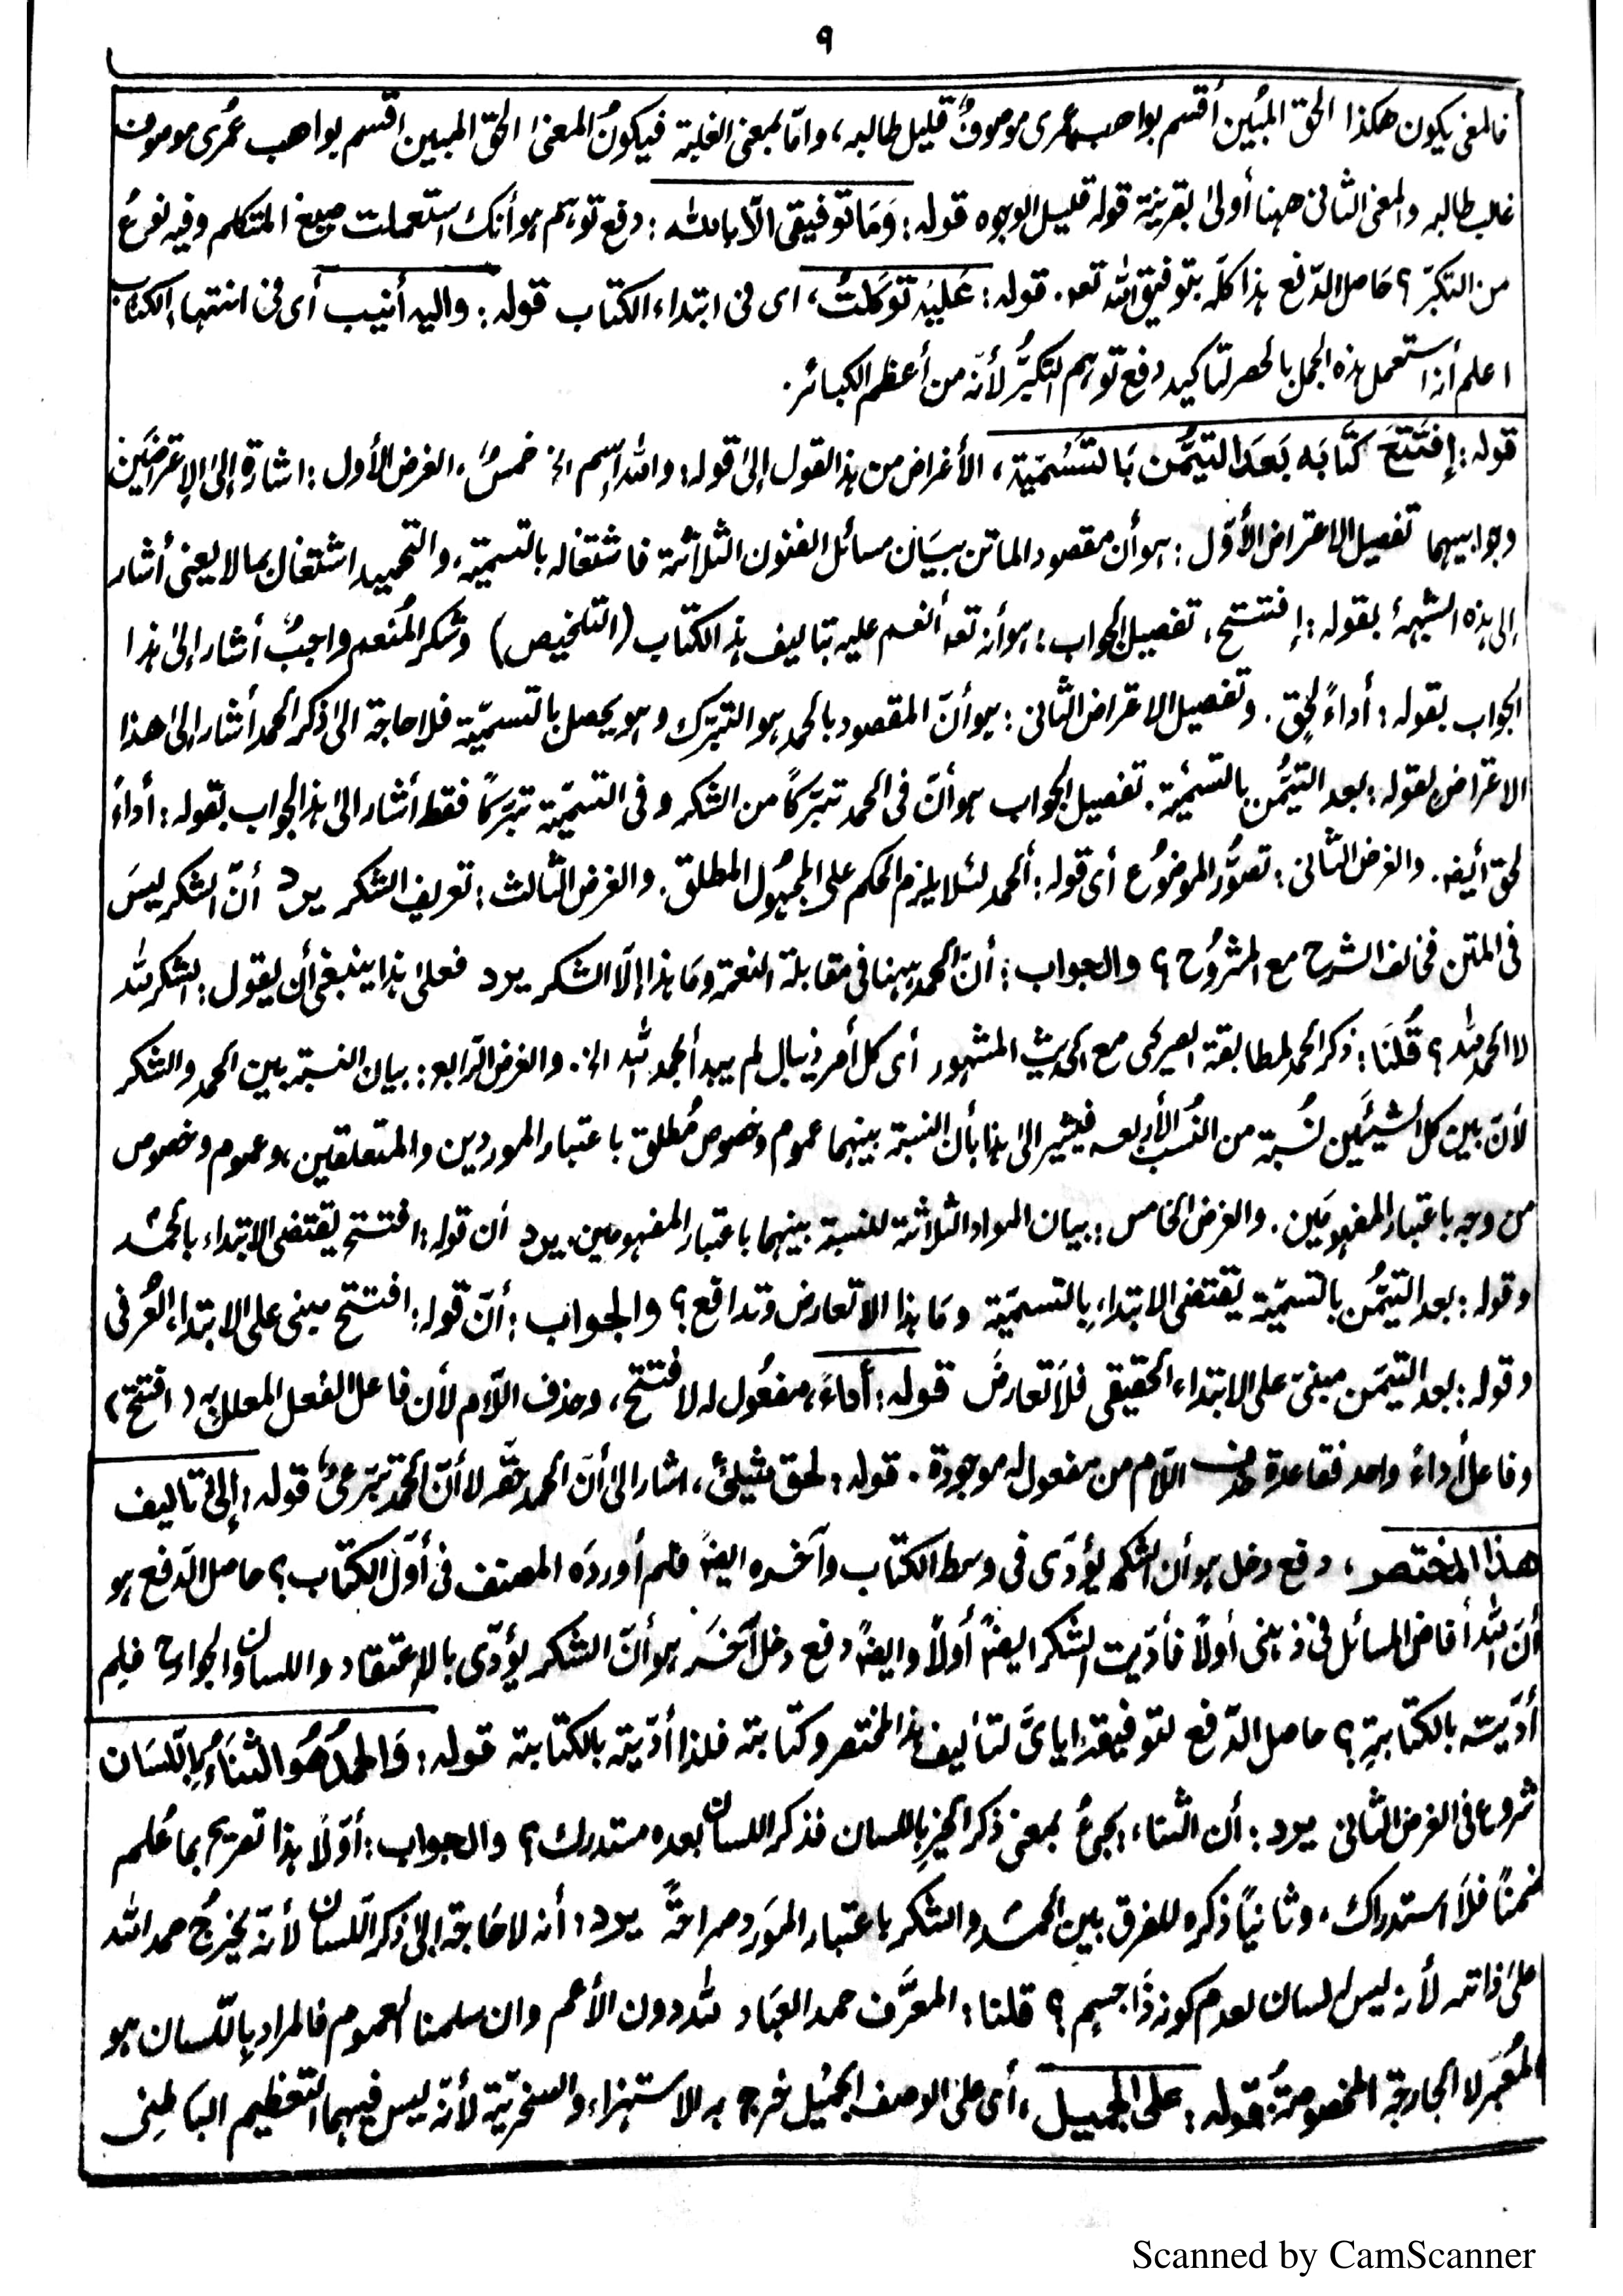 ٩
فالمعنى يكون هكذا الحق المبين أقسم بواهب عمرى موصوفٌ قليل طالبه، وامّا بمعنى الغلبة فيكون المعنىٰ الحق المبين اقسم بواهب عمُرى موصوف
غلب طالبه والمعنى الثانى ههنا أولىٰ بقرينة قوله قليل الوجوه قوله: وَمَا توفيقى الّا بالله: دفع توهم هو أنك استعملت صيغ المتكلم وفيه نوعُ
من التكبّر؟ حَاصل الدّفع هذا كلّه بتوفيق الله تعه. قوله: عَليْه توَكلتُ، اى فى ابتداء الكتاب قوله: واليه أنيب أى فى انتهاء الكتاب
اعلم أنه استعمل هذه الجمل بالحصر لتاكيد دفع توهم التكبُّر لأنّه من أعظم الكبائر.
قوله: إفتَتَحَ كتَابَه بَعدَ التيمُّن بَالتسْمِيَة، الأغراض من هذا القول إلىٰ قوله: والله اِسم الخ خمسٌ، الغرض الأول: اشارة إلىٰ الإعتراضَين
وجوابيهما تفصيل الاعتراض الأوّل: هو أن مقصود الماتن بيَان مسائل الفنون الثلاثة فاشتغاله بالتسمية، والتحميد اشتغال بما لا يعنى أشار
إلى هذه الشبهة بقوله: إفتتح، تفصيل الجواب: هو أنه تعه أنعم عليه بتاليف هذا الكتاب (التلخيص) وشكر المُنعم واجبٌ أشار إلىٰ هذا
الجواب بقوله: أداءً لحق. وتفصيل الاعتراض الثانى: هو أنّ المقصود بالحمد هو التبرّك وهو يحصل بالتسميّة فلا حاجة الىٰ ذكر الحمد أشار إلىٰ هذا
الاعتراض بقوله: بعد التيمُّن بالتسميّة. تفصيل الجواب هو أنّ فى الحمد تبرّكًا من الشكر وفى التسميّة تبرّكًا فقط أشار الىٰ هذا الجواب بقوله: أداءً
لحق أيضه. والغرض الثانى: تصوُّر الموضوُع أى قوله: ألحمد لئلا يلزم الحكم على المجهُول المطلق. والغرض الثالث: تعريف الشكر يرد أنّ الشكر ليسَ
فى المتن فخالف الشرح مع المشرُوح؟ والجواب: أنّ الحمد ههنا فى مقابلة النعمة ومَا هذا إلّا الشكر يرد فعلىٰ هذا ينبغى أن يقول: الشكر لله
لا الحمد لله؟ قُلنَا: ذكر الحمد لمطابقة الصريحى مع الحديث المشهور أى كل أمر ذى بال لم يبدأ بحمد الله الخ. والغرض الرّابع: بيان النسبة بين الحمد والشكر
لأنّ بين كل شيئَين نُسبة من النُسَب الأربعه فيشير الىٰ هذا بأن النسبة بينهما عموم وخصوص مُطلق باعتبار الموردين والمتعلقين، وعموم وخصوص
من وجه باعتبار المفهومَين. والغرض الخامس: بيان المواد الثلاثة للنسبة بينهما باعتبار المفهومين، يرد أن قوله: افتتح يقتضى الابتداء بالحمد
وقوله: بعد التيمُّن بالتسميّة يقتضى الابتداء بِالتسميّة ومَا هذا الا تعارض وتدافع؟ والجواب: أنّ قوله: افتتح مبنى على الابتداء العُرفى
وقوله: بعد التيمّن مبنىّ على الابتداء الحقيقى فلَا تعارضَ قوله: أداءً، مفعُول له لافتتح، وحذف اللّام لأن فاعل الفعل المعلل به (افتتح)
وفاعل أداءً واحد فقاعدة حذف اللّام من مفعول له موجودة. قوله: لحق شيئٍ، اشار الىٰ أنّ الحمد حقه لا أنّ الحمد تبرّعىٌ قوله: إلىٰ تاليف
هذا المختصر، دفع دخل هو أن الشكر يؤدّى فى وسط الكتاب وآخره ايضًا فلم أوردَه المصنف فى أوّل الكتاب؟ حاصل الدّفع هو
أنّ الله أفاض المسائل فى ذهنى أولًا فأدّيت الشكر ايضًا أولًا وايضًا دفع دخل آخَر هو أنّ الشكر يؤدّى بالإعتقاد واللسان والجوارح فلِم
أدّيته بالكتابةِ؟ حاصل الدّفع لتوفيقه اياىَّ لتاليف هذا المختصر وكتابته فلذا أدّيته بالكتابة قوله: وَالحمدُ هُو الثنَاءُ بِاللّسَان
شروع فى الغرض الثانى يرد: أن الثناء يجئُ بمعنى ذكر الخير باللسان فذكر اللسان بعده مستدرك؟ والجواب: أوّلًا هذا تصريح بما عُلم
ضمنًا فلَا استدراك، وثانيًا ذكره للفرق بين الحمد والشكر باعتبار المَورد صراحةً يرد: أنه لا حَاجة إلىٰ ذكر اللّسان لأنّه يخرُج حمد الله
علىٰ ذاته لأنه ليس له لسان لعدم كونه ذَا جسم؟ قلنا: المعرَّف حمد العبَاد لله دون الأعم وان سلمنا العموم فالمراد بِاللّسان هو
المُعبِّر لا الجارحة المخصوصَة قوله: على الجميل، أى علىٰ الوصف الجميْل خرج به الاستهزاء والسخريّة لأنّه ليس فيهما التعظيم البَاطنى
Scanned by CamScanner